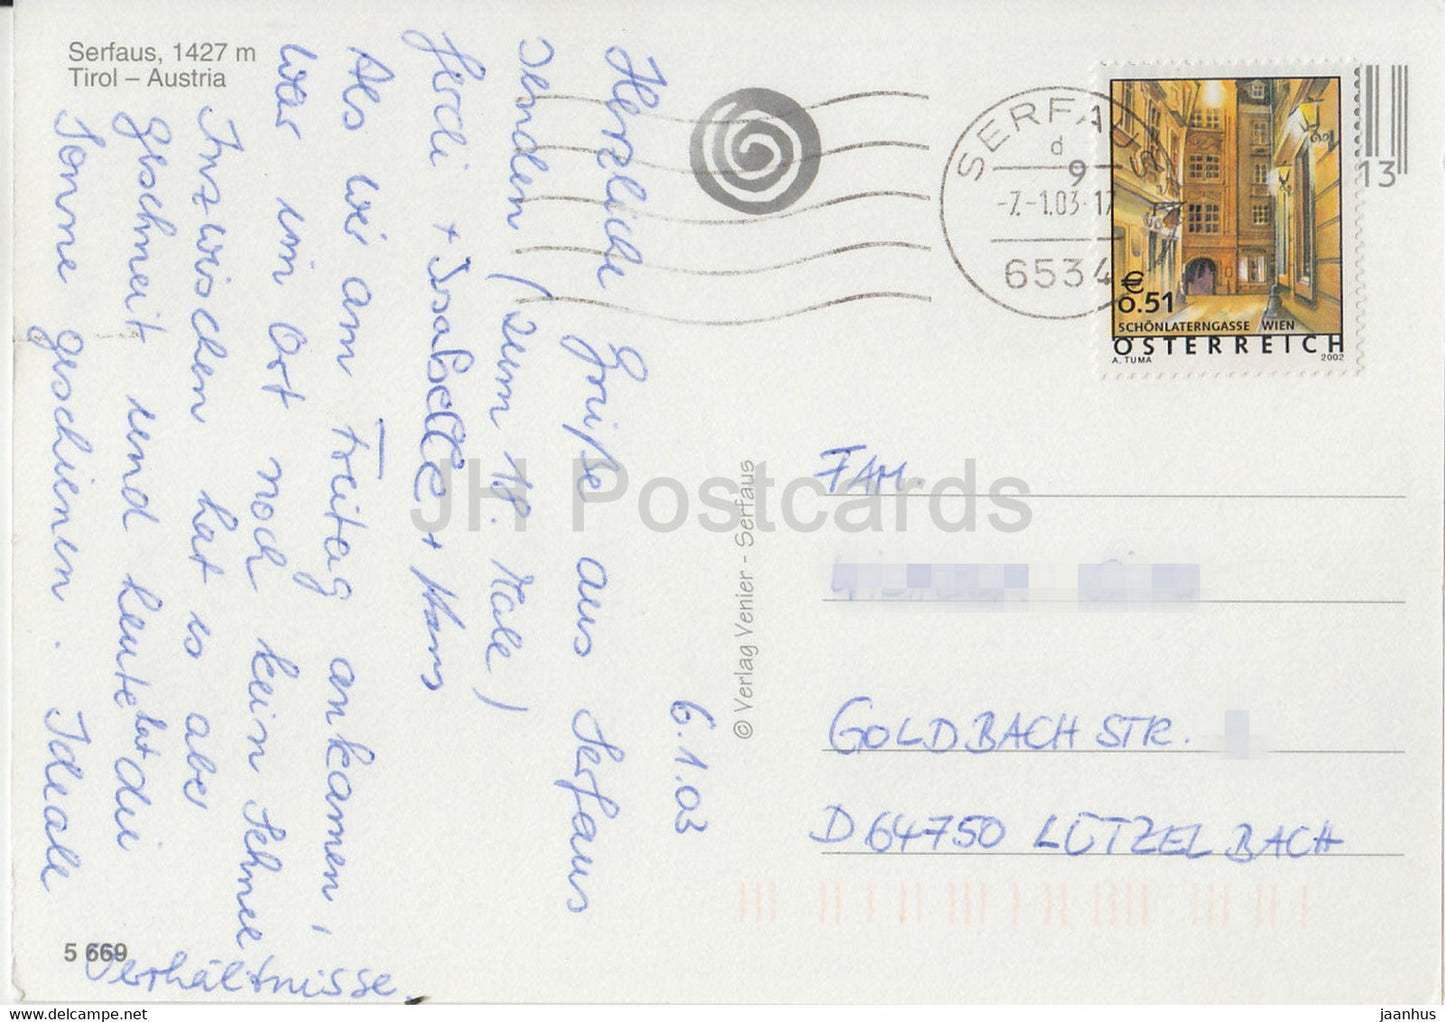 Serfaus, 1427 m
Tirol – Austria
6.1.03
Herzliche Grüße aus Serfaus
senden (zum 18. Male)
Hedi + Isabelle + Hans
Als wir am Freitag ankamen,
war im Ort noch kein Schnee
Inzwischen hat es aber
geschneit und heute hat die
Sonne geschienen. Ideale
Verhältnisse.
5 669
© Verlag Venier - Serfaus
SERFAUS
d
9
-7.-1.03-17
6534
13
€
0.51
SCHÖNLATERNGASSE WIEN
ÖSTERREICH
A. TUMA 2002
FAM.
GOLDBACHSTR.
D 64750 LÜTZELBACH
JH Postcards
www.delcampe.net
jaanhus